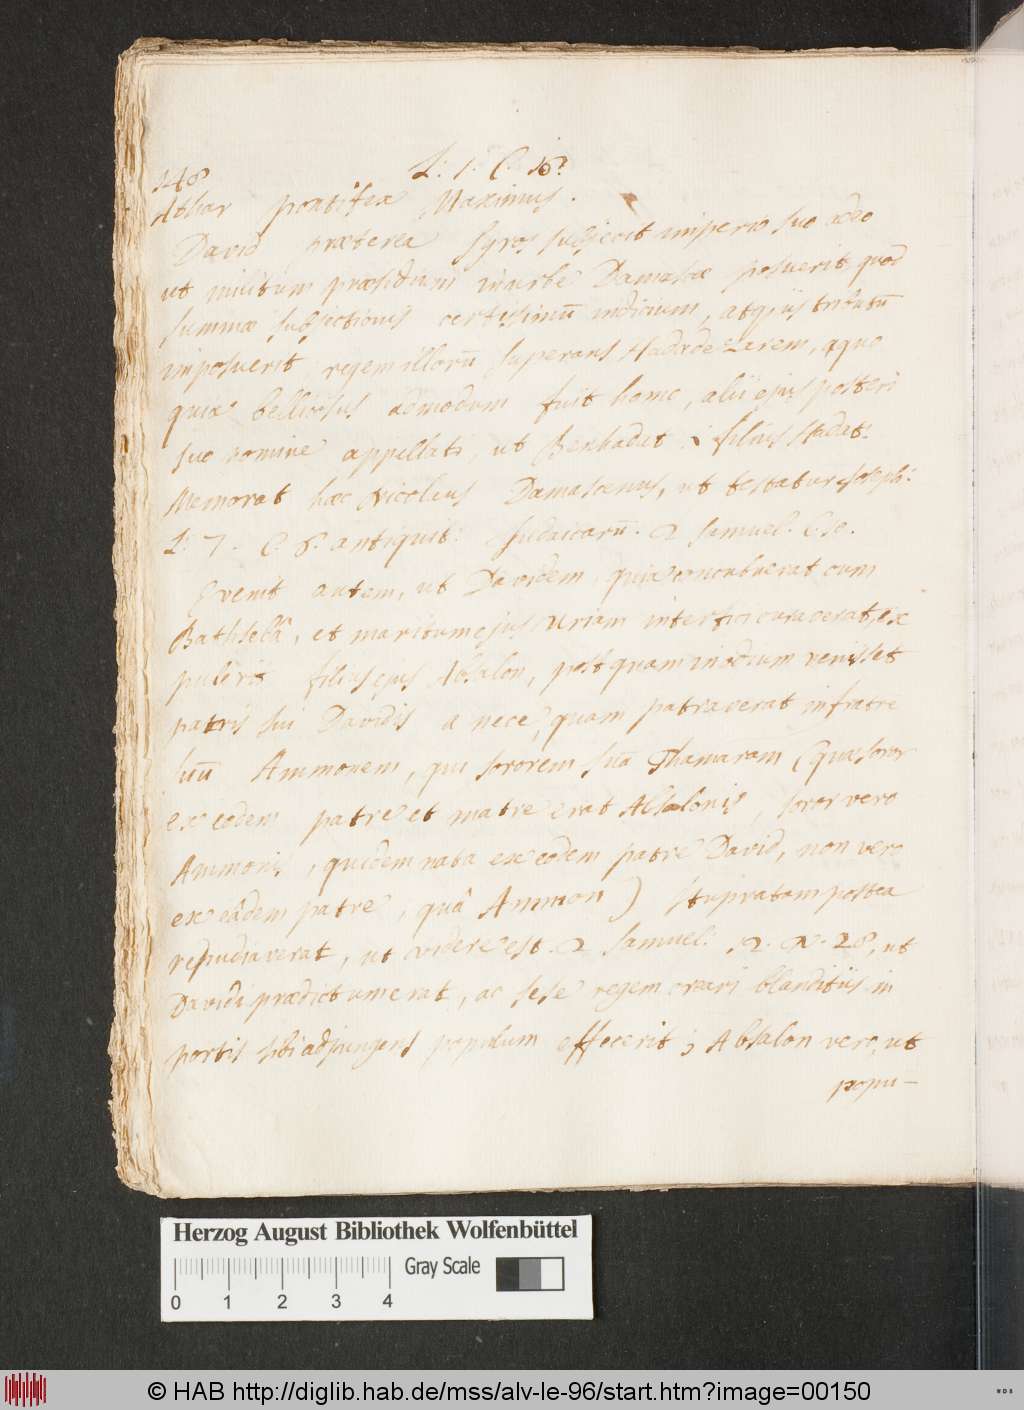 148
L: 1. C. 18.
Athar pontifex Maximus.
David praeterea Syros subjecit imperio suo adeo
ut militum praesidium in urbe Damasco posuerit quod
summae subjectionis certissimū indicium, atq; iis tributū
imposuerit regem illorū superans Hadadezarem, a quo
quia bellicosus admodum fuit homo, alii ejus posteri
suo nomine appellati, ut Benhadat i filius Hadat.
Memorat haec Nicolaus Damascenus, ut testatur Joseph:
L: 7. C. 6. antiquit: Judaicarū. 2 Samuel. C. 8.
Evenit autem, ut Davidem quia concubuerat cum
Bathsebâ, et maritum ejus Uriam interfici curaverat, ex
pulerit filius ejus Absalon, postquam in odium venisset
patris sui Davidis a nece, quam patraverat in fratrē
suū Ammonem, qui sororem suā Thamaram (quae soror
ex eodem patre et matre erat Absalonis, soror vero
Ammonis, quidem nata ex eodem patre David, non vero
ex eâdem patre, quâ Ammon) stupratam postea
repudiaverat, ut videre est 2 Samuel. 28, ut
Davidi praedictum erat, ac sese regem creari blanditiis in
portis sibi adjungens populum effecerit; Absalon vero, ut
popu-
Herzog August Bibliothek Wolfenbüttel
Gray Scale
0 1 2 3 4
© HAB http://diglib.hab.de/mss/alv-le-96/start.htm?image=00150